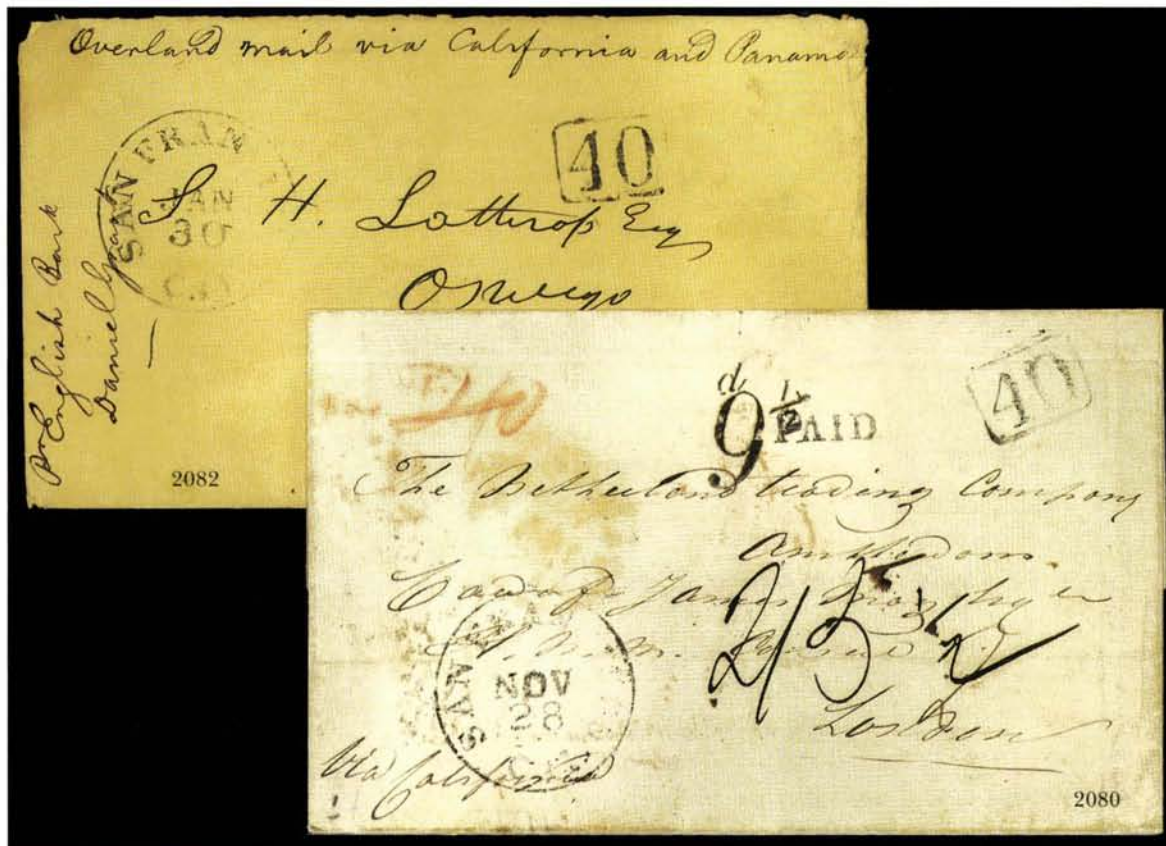 Overland mail via California and Panama
SAN FRAN
JAN
30
40
S. H. Lothrop Esq
Oswego
Pr English Bark
Daniel Grant
2082
40
d 9 1/2
PAID
40
The Netherland trading Company
Amsterdam
Care of James
H. N. M. Consul
2/3 1/2
London
SAN FRAN
NOV
28
Via California
2080